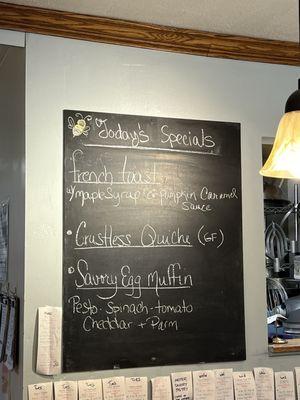 Today's Specials
french toast
w/ maple syrup or pumpkin Caramel
Sauce
• Crustless Quiche (GF)
• Savory Egg Muffin
Pesto - Spinach - tomato
Cheddar + Parm